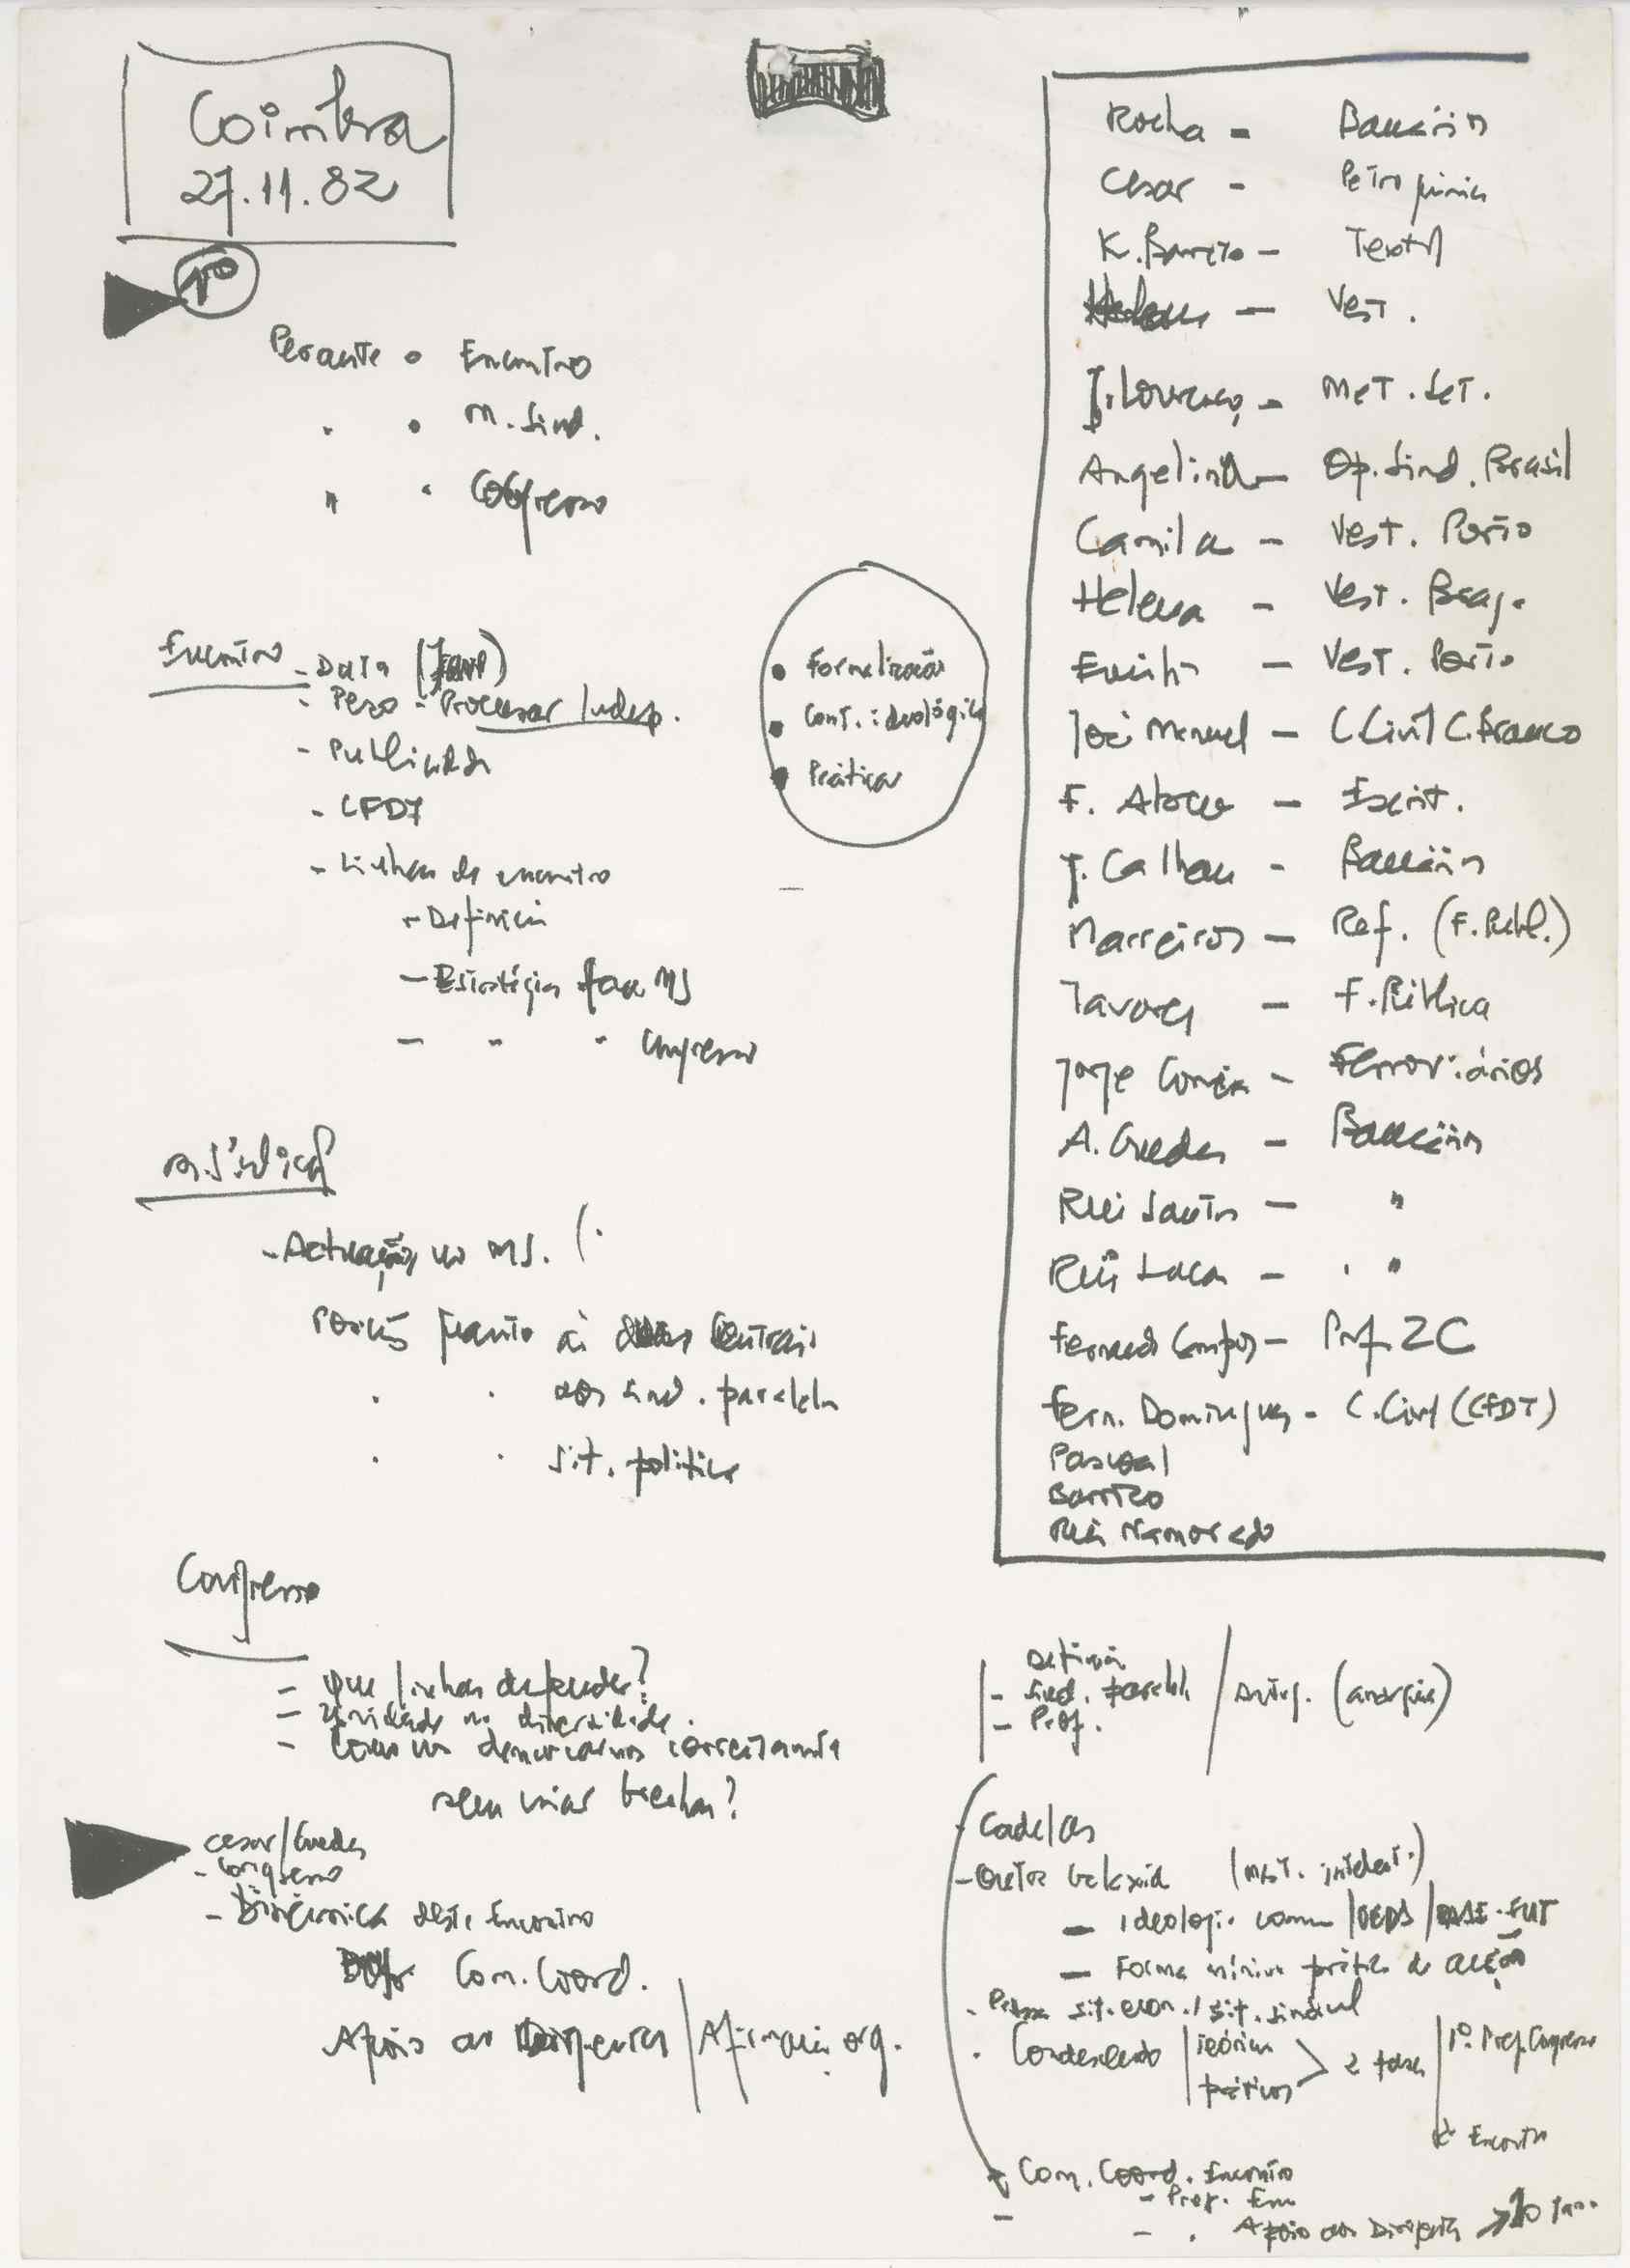 Coimbra
27.11.82
1º
Perante o Encontro
" " M. Sind.
" " Congresso
Encontro
- Data
- Peso - Processar Indep.
- Publicidade
- CFDT
- Linhas de encontro
- Definição
- Estratégia para MS
- " " Congresso
• Formalização
• Cont. ideológico
• Prática
M. Sindical
- Actuação no MS. (.
Posição quanto às duas Centrais
" " aos sind. paralelos
" " sit. política
Congresso
- Que linhas defender?
- Unidade na diversidade.
- Como nos demarcarmos correctamente
sem criar brechas?
Cesar/Guedes
- Congresso
- Dinâmica deste Encontro
Com. Coord.
Apoio aos Dirigentes / Afirmação org.
Rocha - Bancários
Cesar - Petroquímica
K. Barreto - Textil
Helena - Vest.
J. Lourenço - Met. Set.
Angelina - Op. Sind. Brasil
Camila - Vest. Porto
Helena - Vest. Braga
- Vest. Porto
José Manuel - C. Civil C. Branco
F. Abreu - Escrit.
J. Calhau - Bancários
Marreiros - Ref. (F. Públ.)
Tavares - F. Pública
Jorge Correia - Ferroviários
A. Guedes - Bancários
Rui Santos - "
Rui Lucas - " "
Fernando Campos - Prof. ZC
Fern. Domingues - C. Civil (CFDT)
Pascoal
Barrico
Rui Namorado
Definição
- Sind. paralelos
- Prof.
- Outra galáxia
- Ideologia comum / UEDS / BASE-FUT
- Forma mínima prática de acção
- sit. econ. / sit. sindical
teóricos
práticos > 2 fases
1º Prep. Congresso
2º Encontro
- Com. Coord. Encontro
- Prep. Enc.
- " Apoio aos Dirigentes →